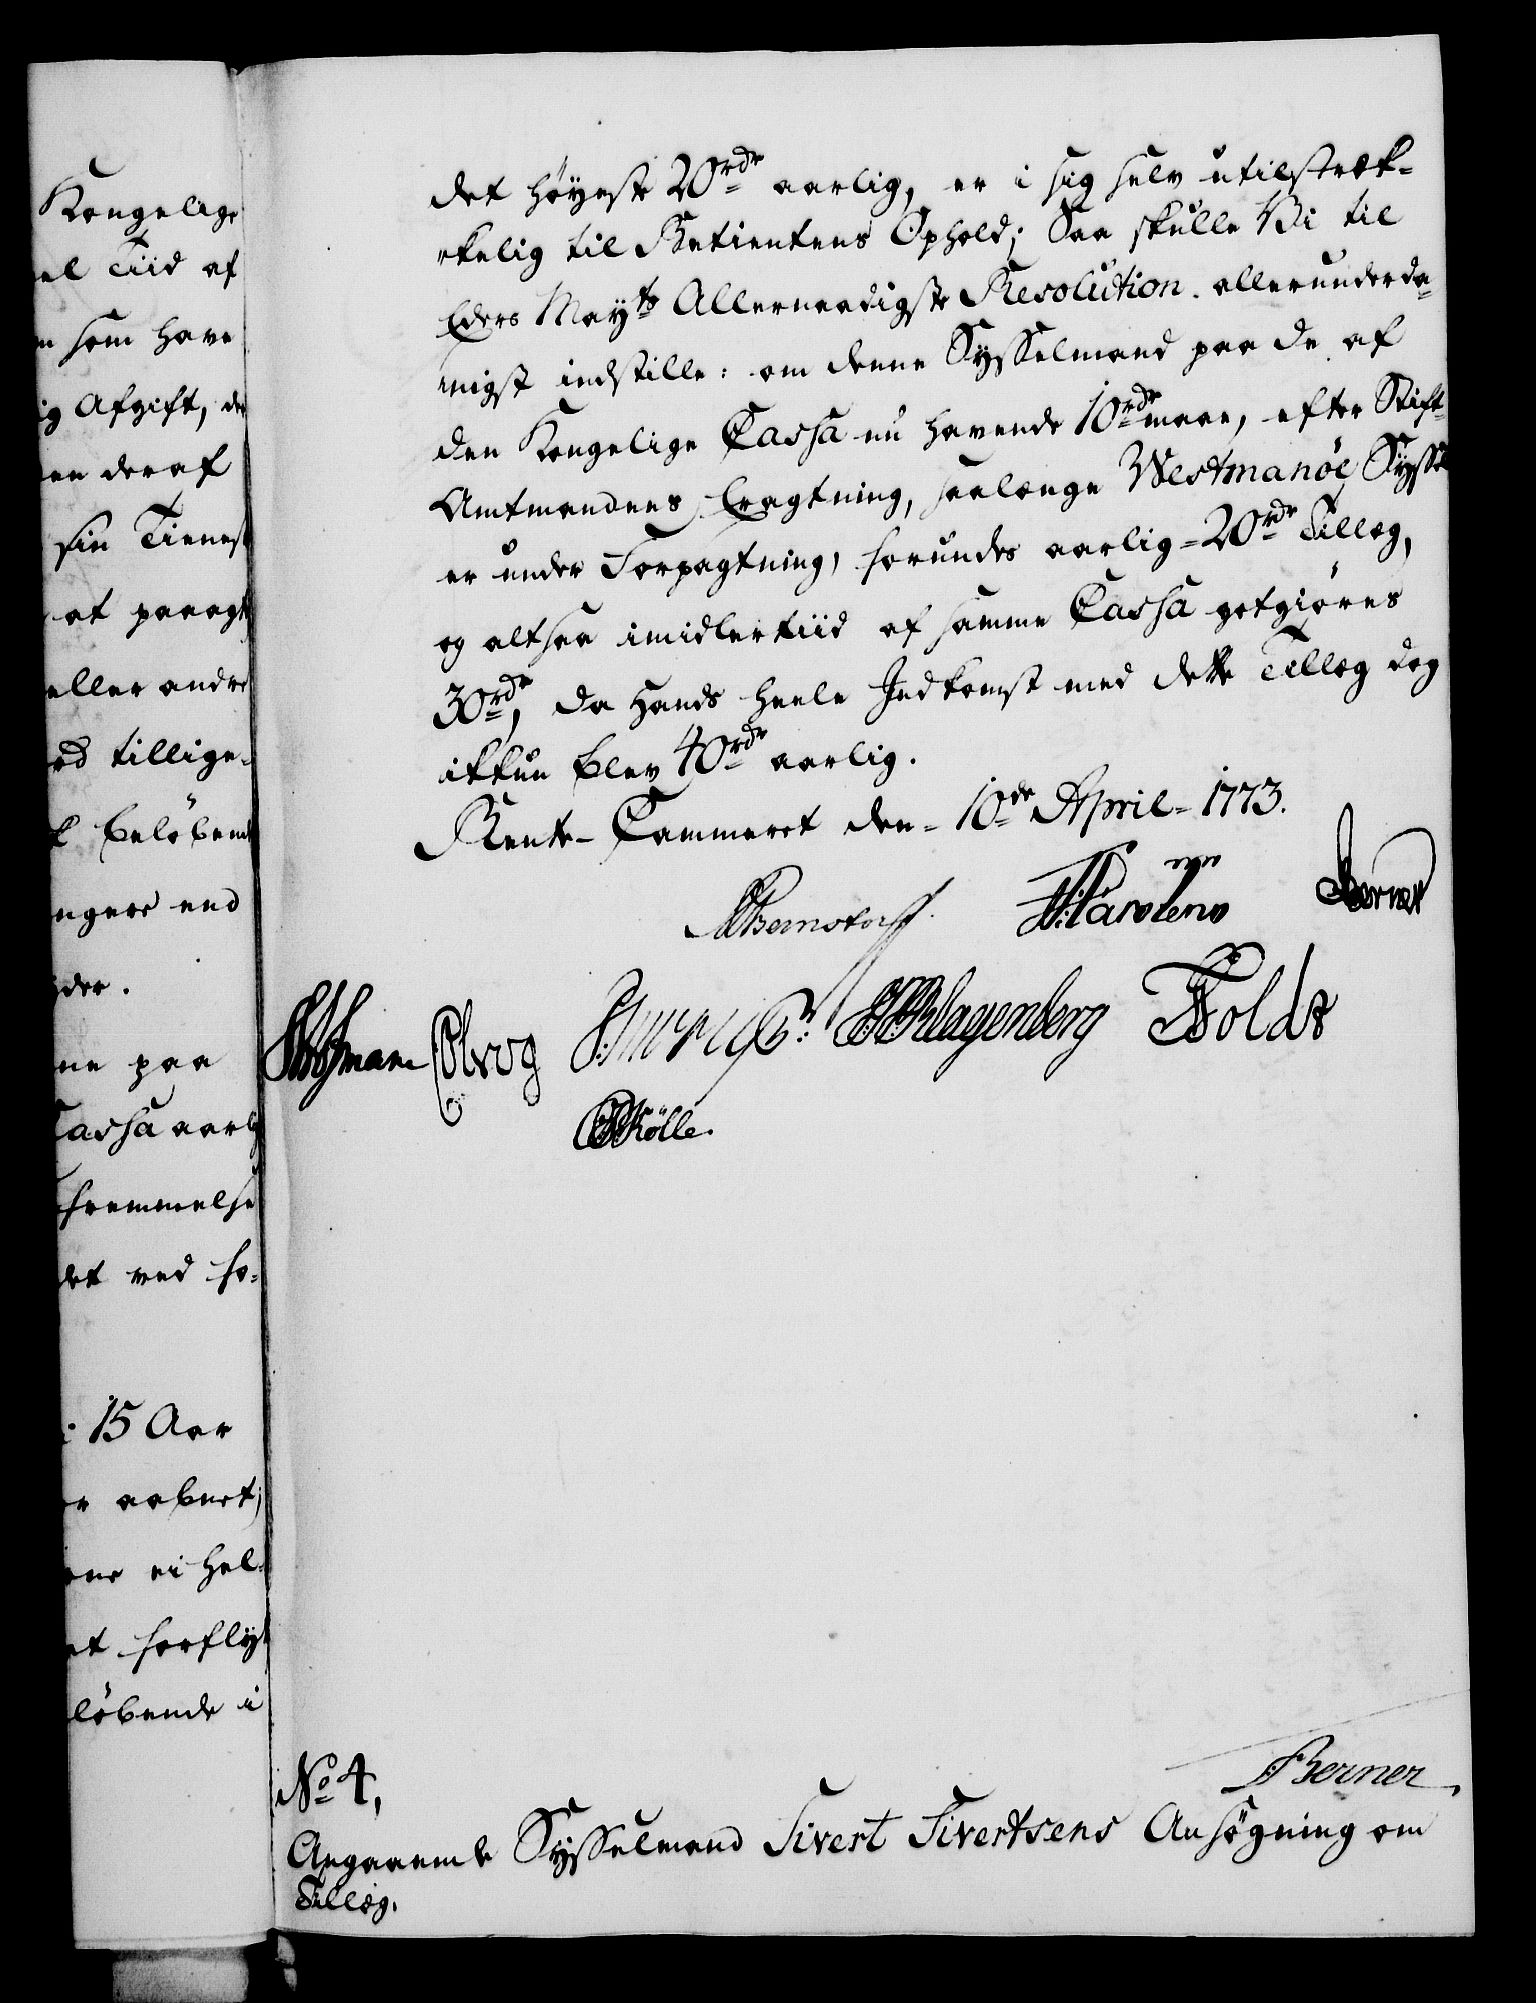 Kongelige
el Tiid af
som have
ig Afgift, de
en deraf
sin Tienest
at paaagt
eller andre
tillige-
beløbend
ngere end
der.
ne paa
Cassa aarlig
fremmelse
det ved fo-
15 Aar
aabnet;
ei hel-
forflyt
løbende i
det høyeste 20 rdr aarlig, er i sig selv utilstræk-
kelig til Betientens Ophold; Saa skulle Vi til
Eders Mayts Allernaadigste Resolution allerunderda-
nigst indstille: om denne Sysselmand paa de af
den Kongelige Cassa nu havende 10 rdr maae, efter Stift-
Amtmandens Eragtning, saalænge Westmanöe Syssel
er under Forpagtning, forundes aarlig - 20 rdr Tillæg,
og altsaa imidlertiid af samme Cassa godtgiøres
30 rdr, da hands heele Indkomst med dette Tillæg dog
ikkun blev 40 rdr aarlig.
Rente-Cammeret den - 10de April - 1773.
Bernstorff.
Hofman
Klagenberg Holdt
Kölle.
Berner
No 4,
Angaaende Sysselmand Sivert Sivertsens Ansøgning om
Tillæg.